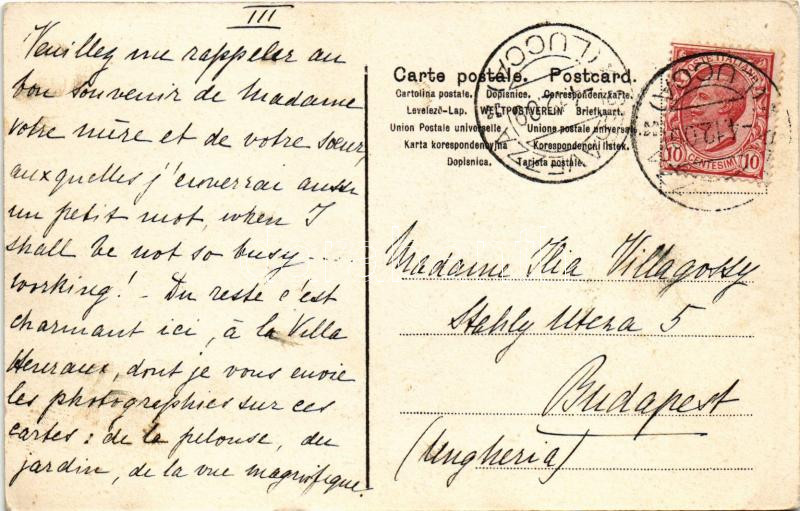 III
Veuillez me rappeler au
bon souvenir de Madame
votre mère et de votre sœur,
auxquelles j'enverrai aussi
un petit mot, when I
shall be not so busy....
working! - Du reste c'est
charmant ici, à la Villa
Henraux, dont je vous envoie
les photographies sur ces
cartes: de la pelouse, du
jardin, de la vue magnifique.
Carte postale. Postcard.
Cartolina postale. Dopisnice. Correspondenzkarte.
Levelező-Lap. WELTPOSTVEREIN Briefkaart.
Union Postale universelle Unione postale universale
Karta korespondencyjna Korespondenční lístek.
Dopisnica. Tarjeta postale.
POSTE ITALIANE
10 CENTESIMI 10
(LUCCA)
Madame Ilia Villagossy
Stahly Utcza 5
Budapest
(Ungheria)